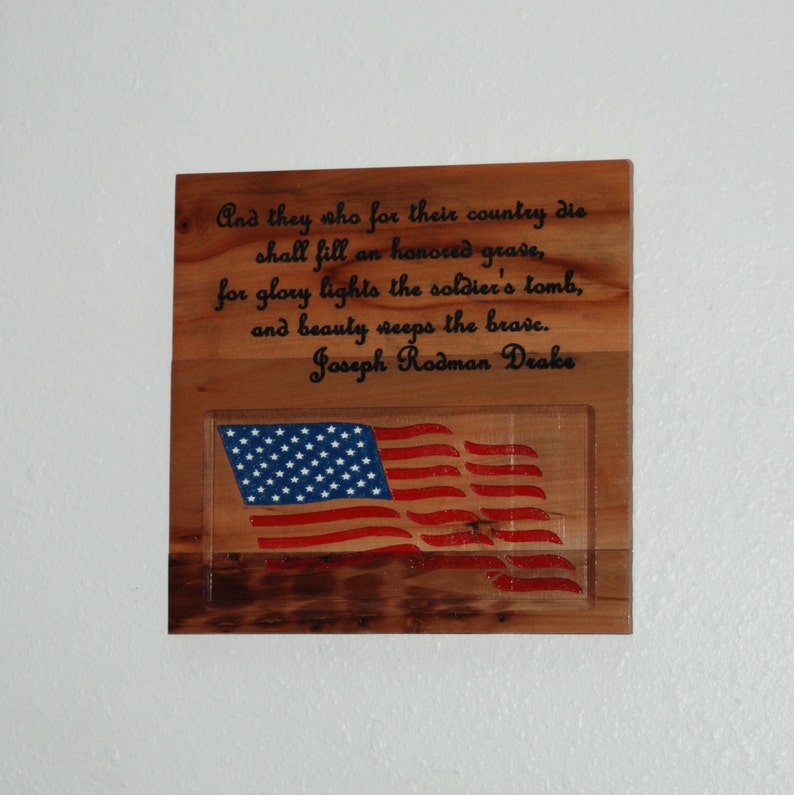 And they who for their country die
shall fill an honored grave,
for glory lights the soldier's tomb,
and beauty weeps the brave.
Joseph Rodman Drake